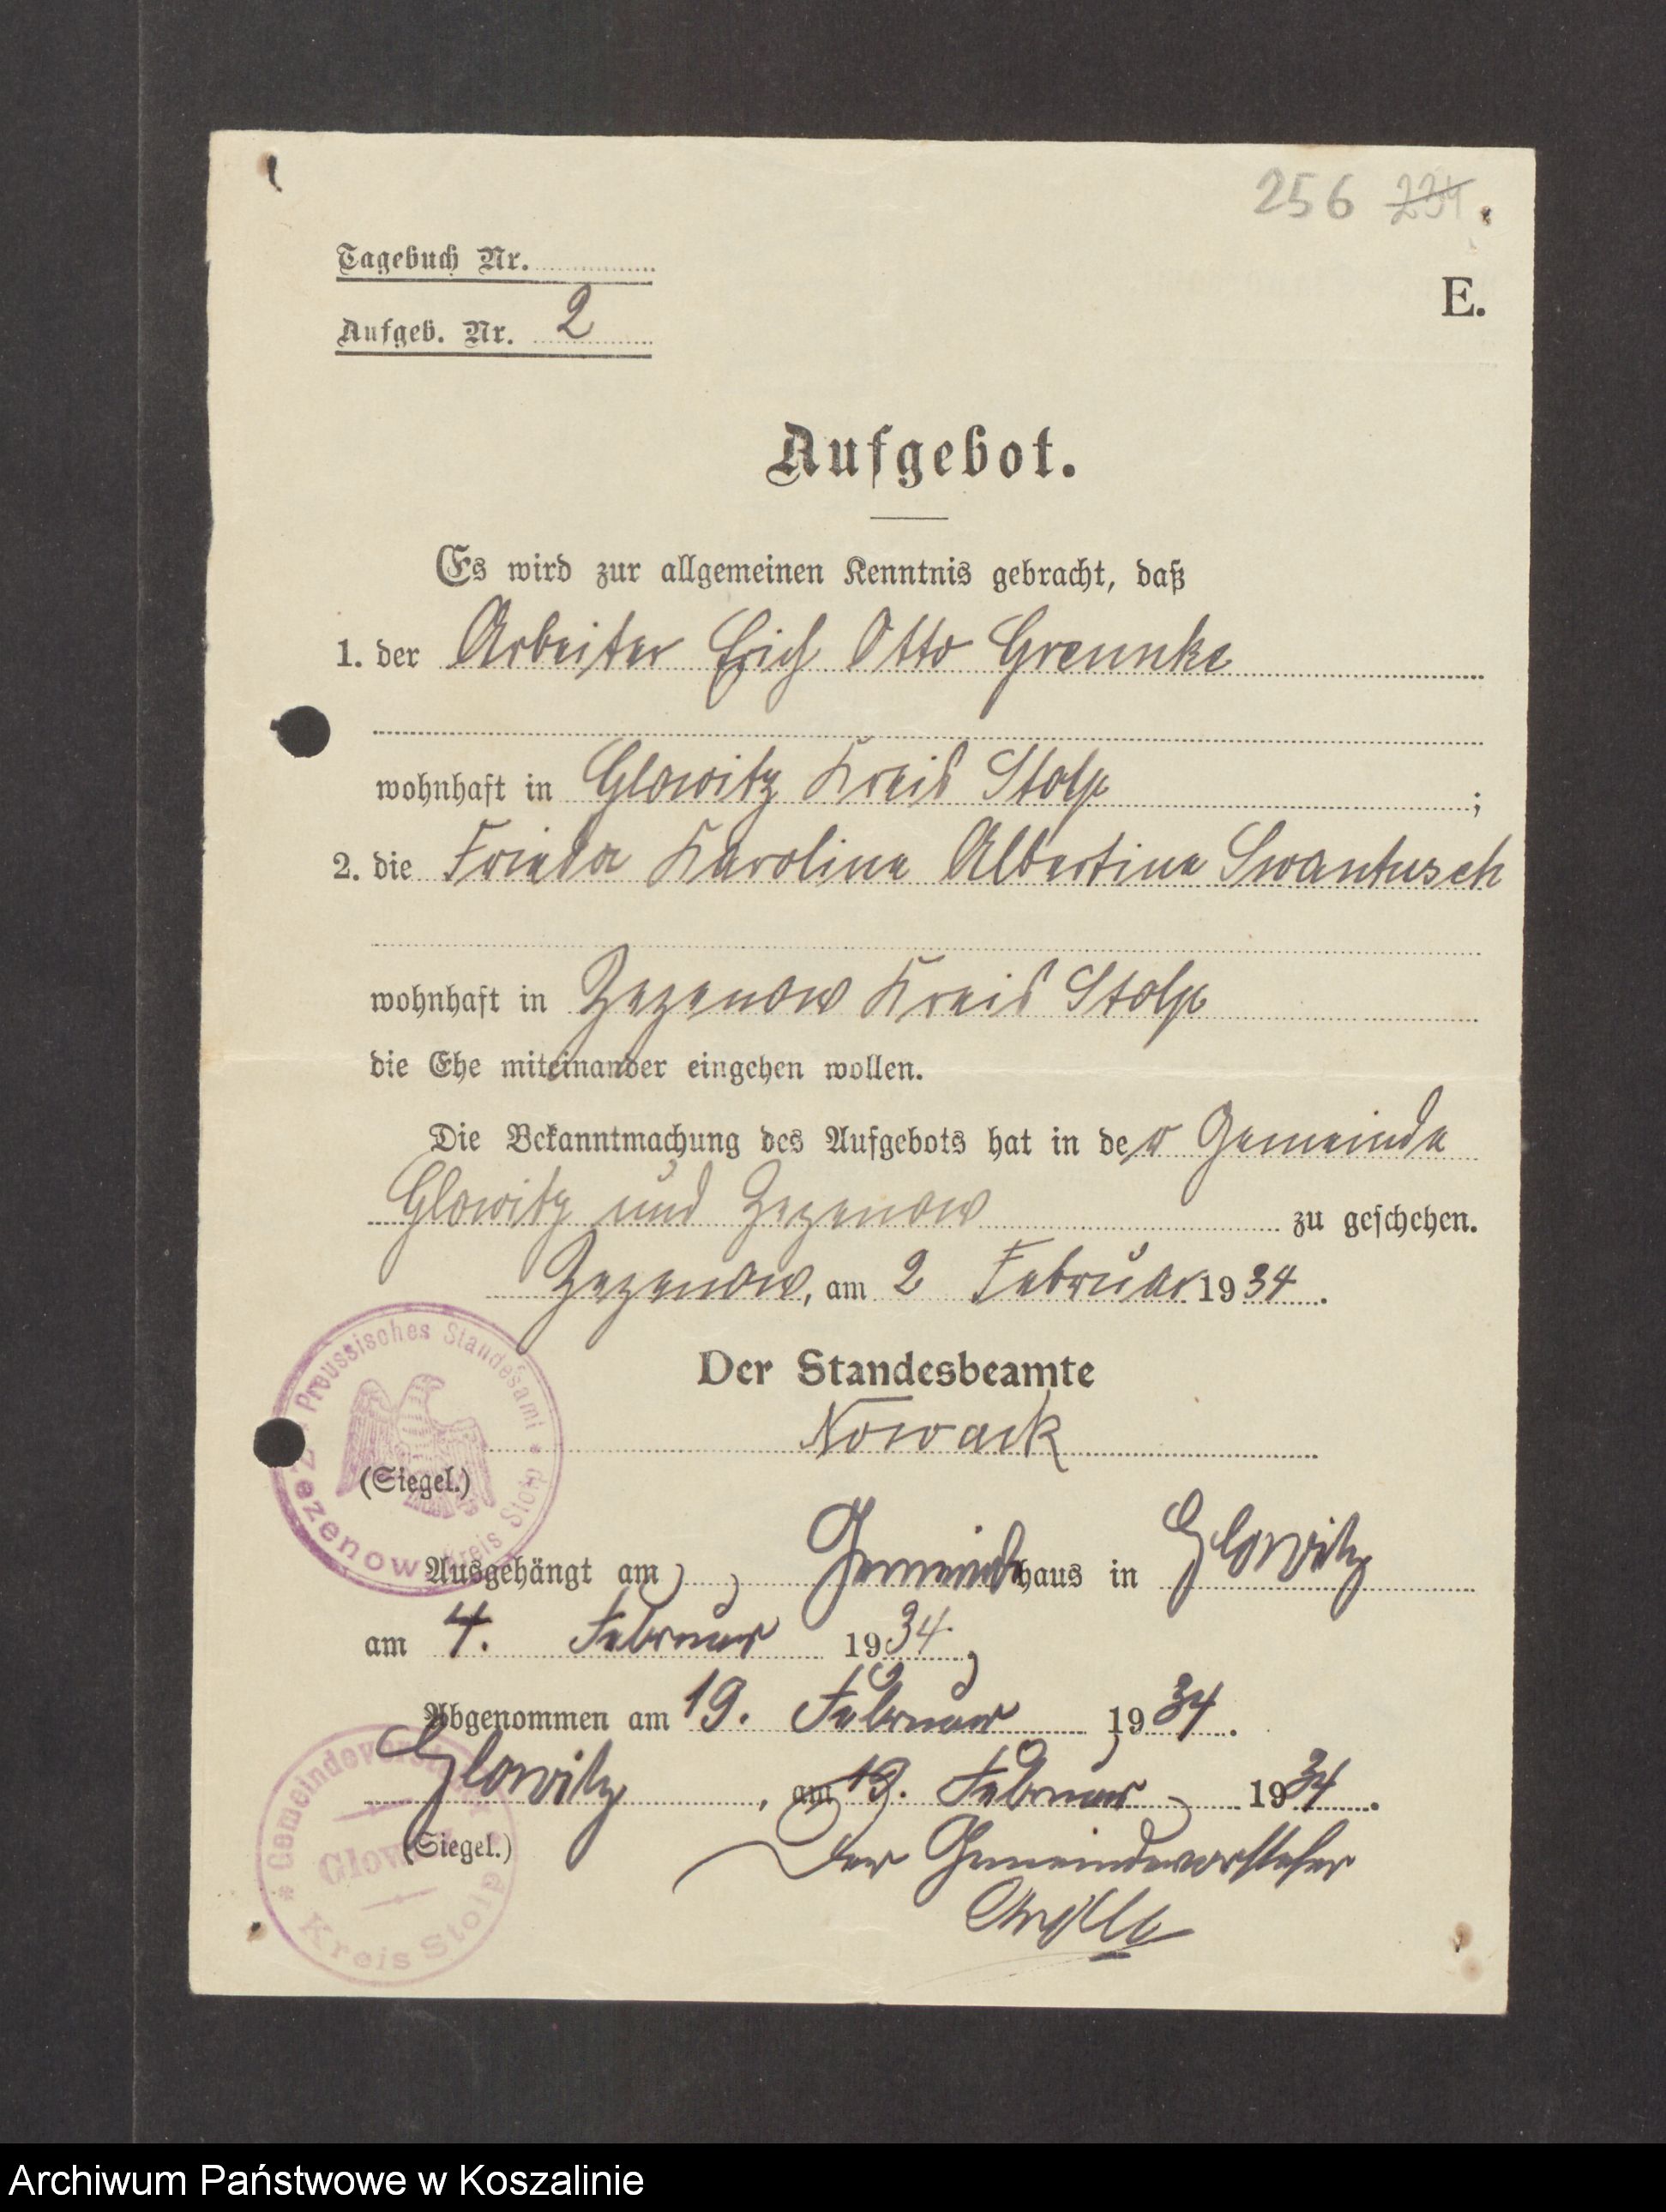 256 234.
Tagebuch Nr.
E.
Aufgeb. Nr. 2
Aufgebot.
Es wird zur allgemeinen Kenntnis gebracht, daß
1. der Arbeiter Erich Otto Greunke
wohnhaft in Glowitz Kreis Stolp ;
2. die Frieda Karoline Albertine Swantusch
wohnhaft in Zezenow Kreis Stolp
die Ehe miteinander eingehen wollen.
Die Bekanntmachung des Aufgebots hat in der Gemeinde
Glowitz und Zezenow zu geschehen.
Zezenow, am 2 Februar 1934.
Preussisches Standesamt
Zezenow Kreis Stolp
Der Standesbeamte
Nowack
(Siegel.)
Ausgehängt am Gemeindehaus in Glowitz
am 4. Februar 1934.
Abgenommen am 19. Februar 1934.
Glowitz, am 19. Februar 1934.
Gemeindevorstand
Glowitz
Kreis Stolp
(Siegel.)
Der Gemeindevorsteher
Archiwum Państwowe w Koszalinie